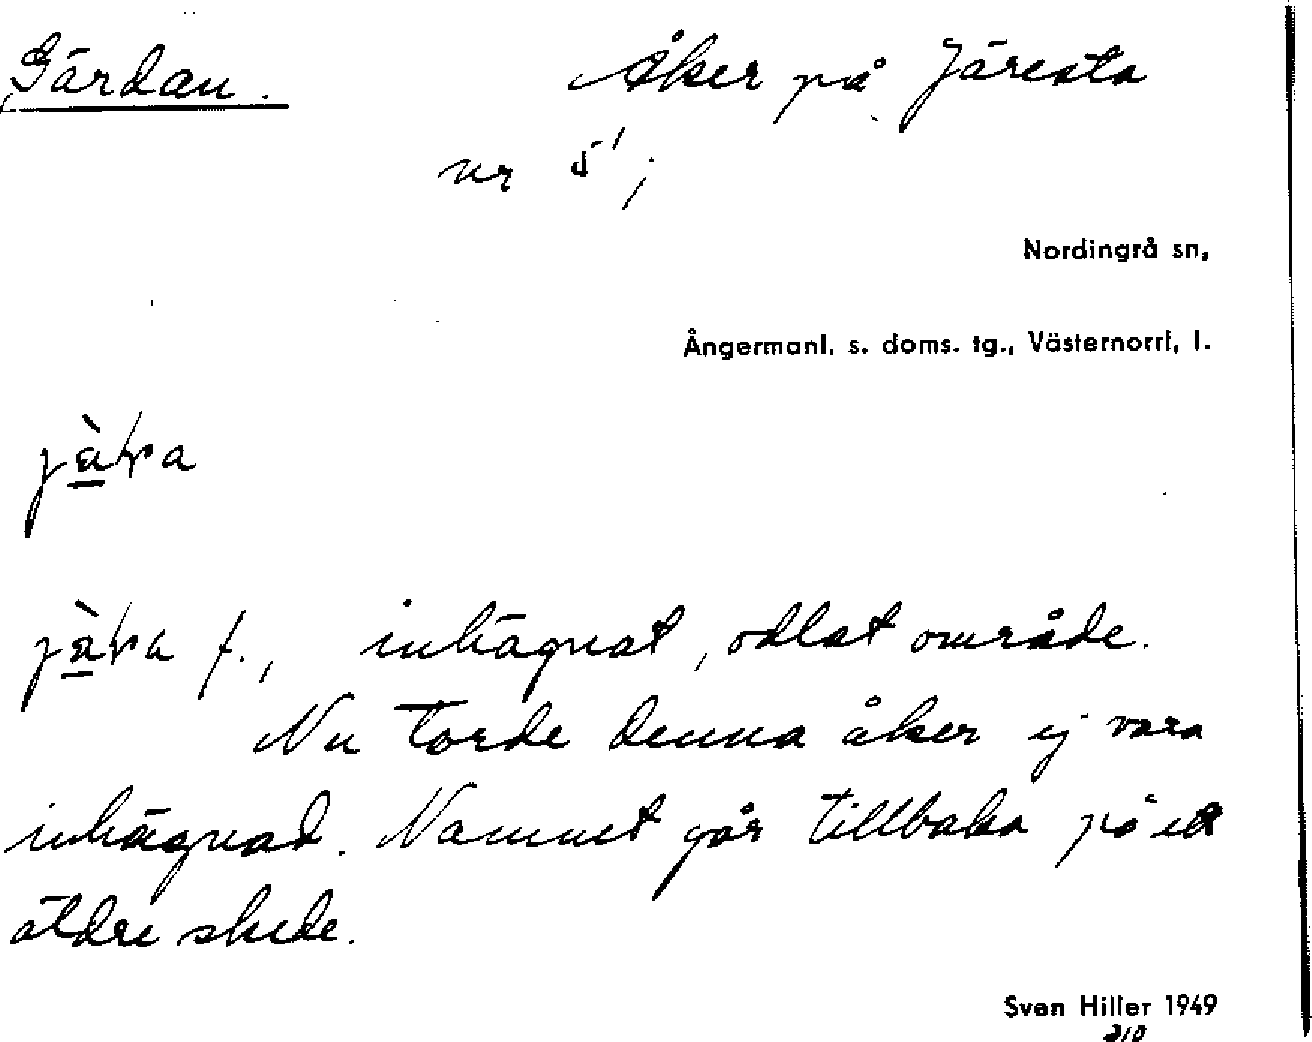 Gärdan. Åker på Järesta
nr 5¹;
Nordingrå sn,
Ångermanl. s. doms. tg., Västernorrl. l.
f., inhägnat, odlat område.
Nu torde denna åker ej vara
inhägnad. Namnet går tillbaka på ett
äldre skede.
Sven Hiller 1949
210